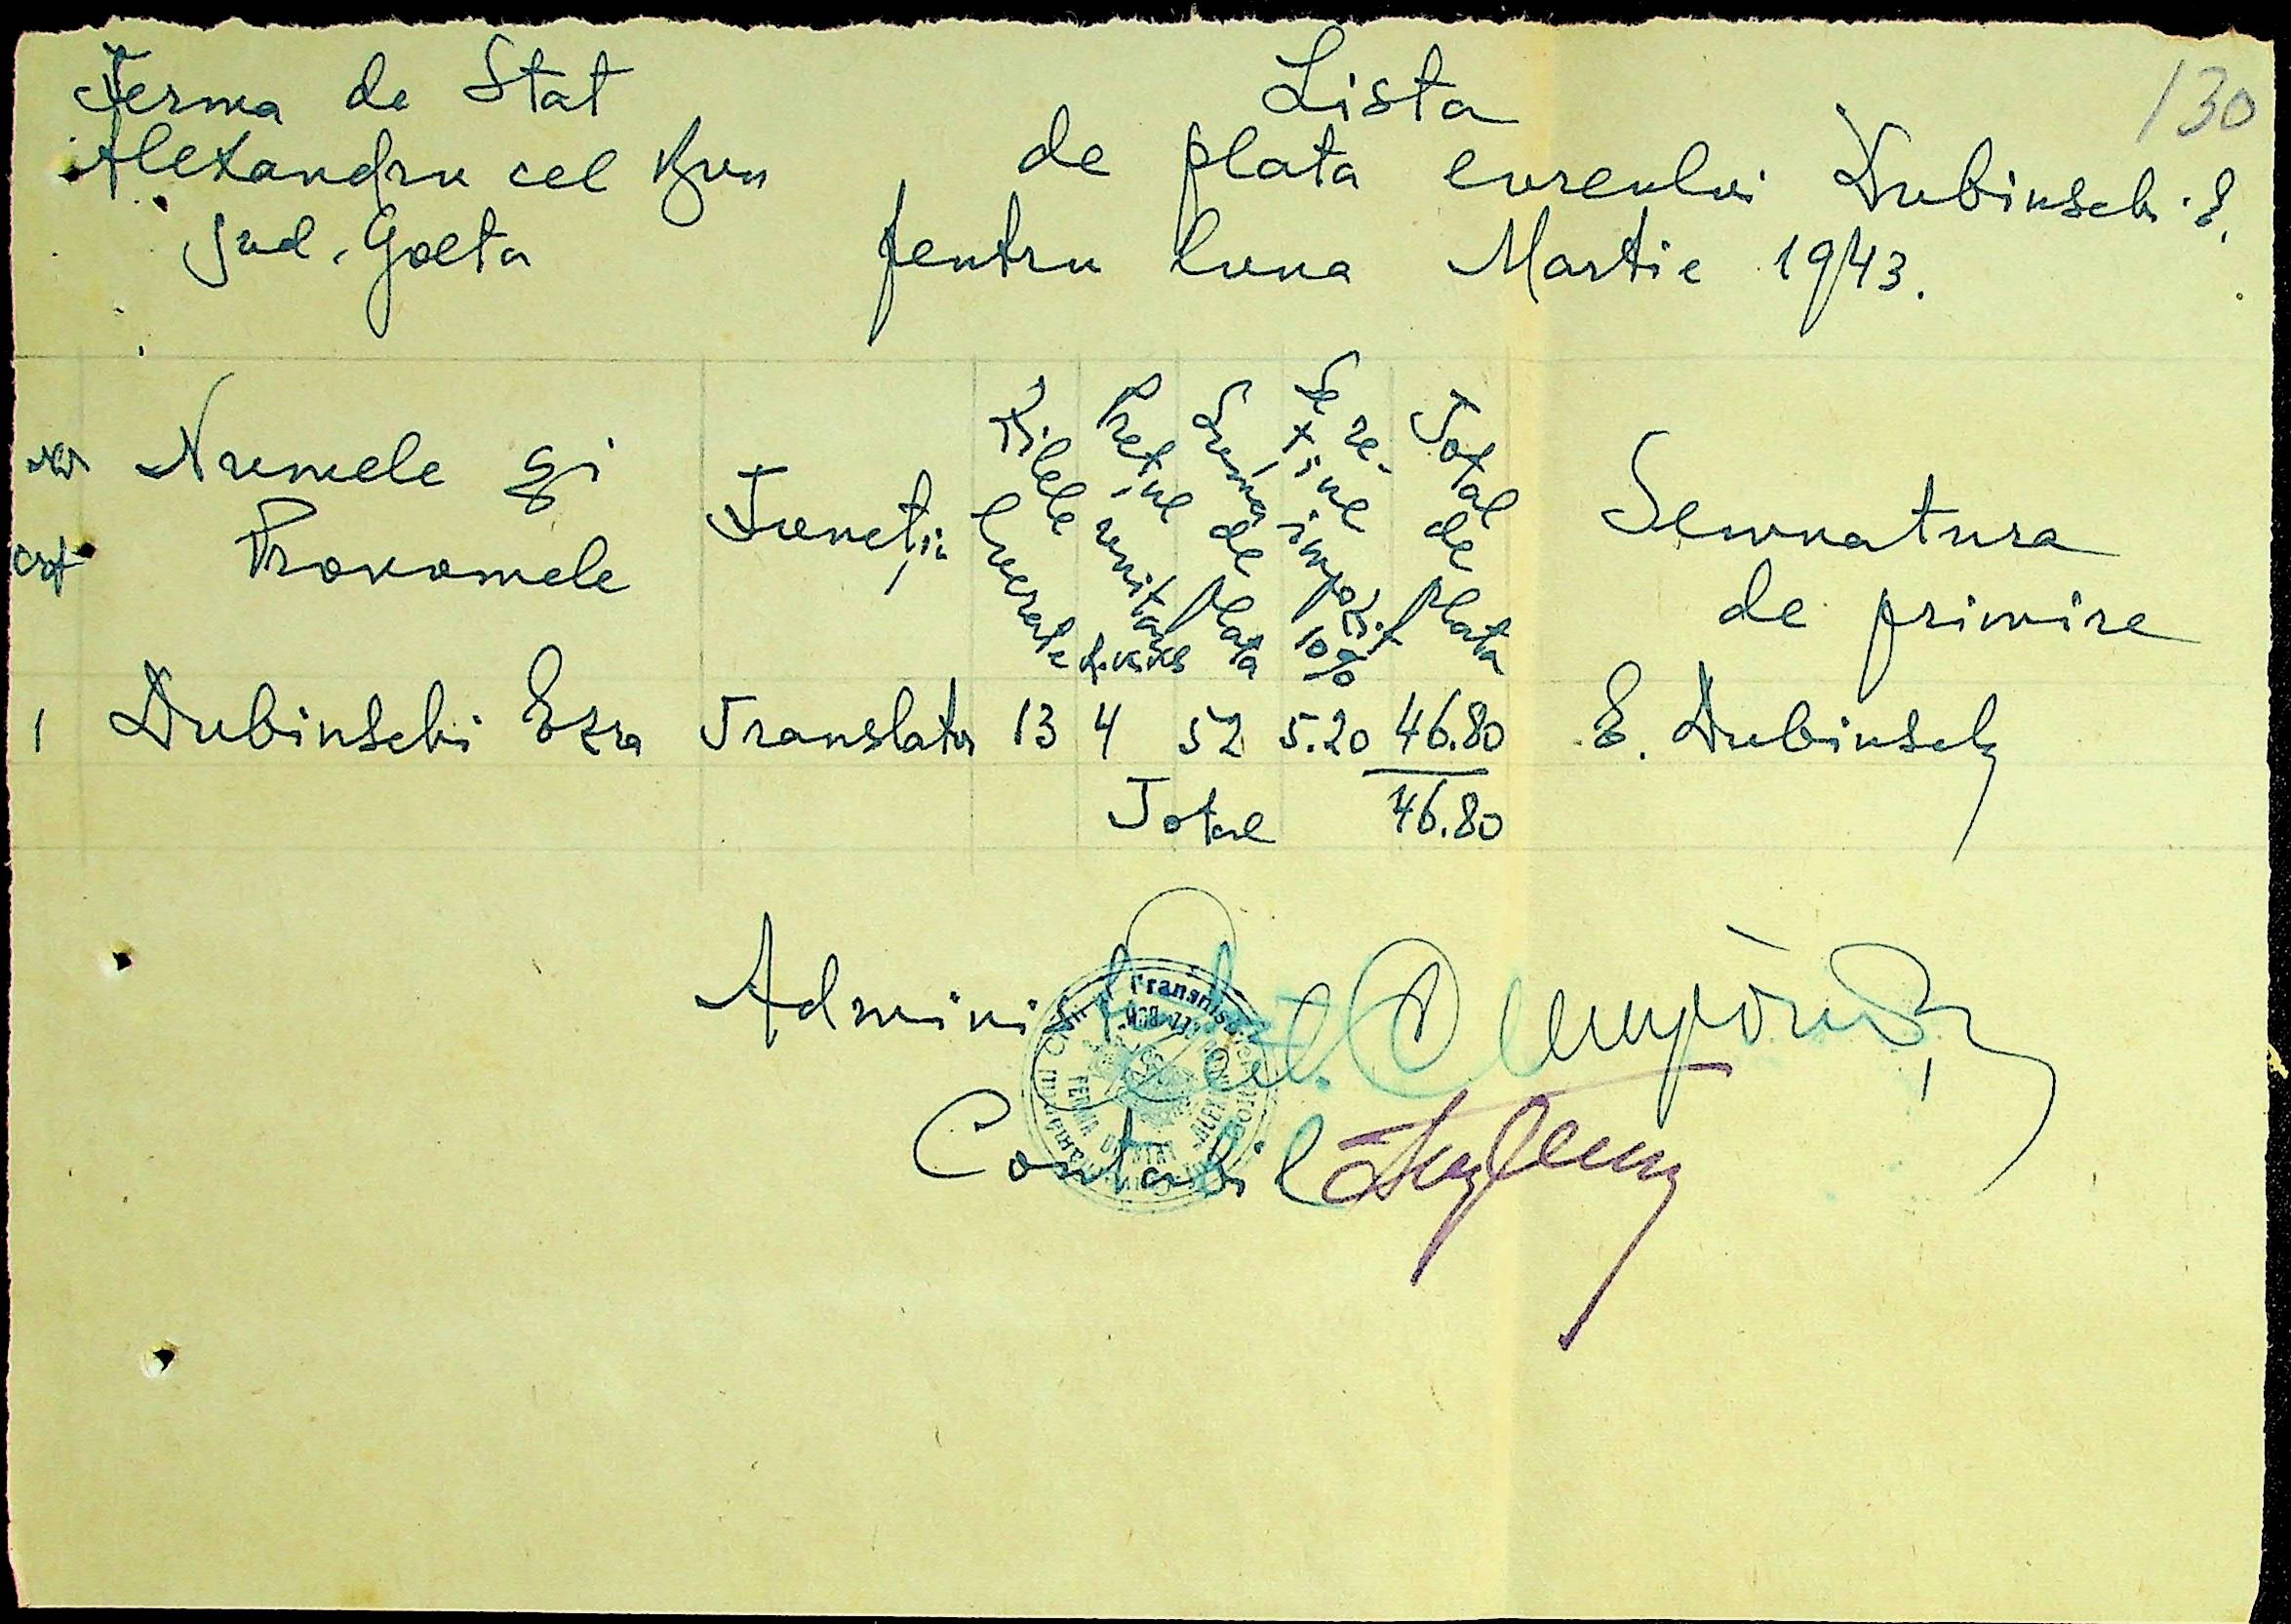 130
Ferma de Stat
Alexandru cel Bun
Jud. Golta
Lista
de plata evreului Dubinschi E.
pentru luna Martie 1943.
Nr crt
Numele și Pronomele
Funcția
Zilele lucrate
Prețul unitar
Suma de plata
Se reține impozit 10%
Total de plata
Semnatura de primire
1 Dubinschi Ezra Translator 13 4 52 5.20 46.80 E. Dubinschy
Total 46.80
Administrator
Contabil
FERMA DE STAT